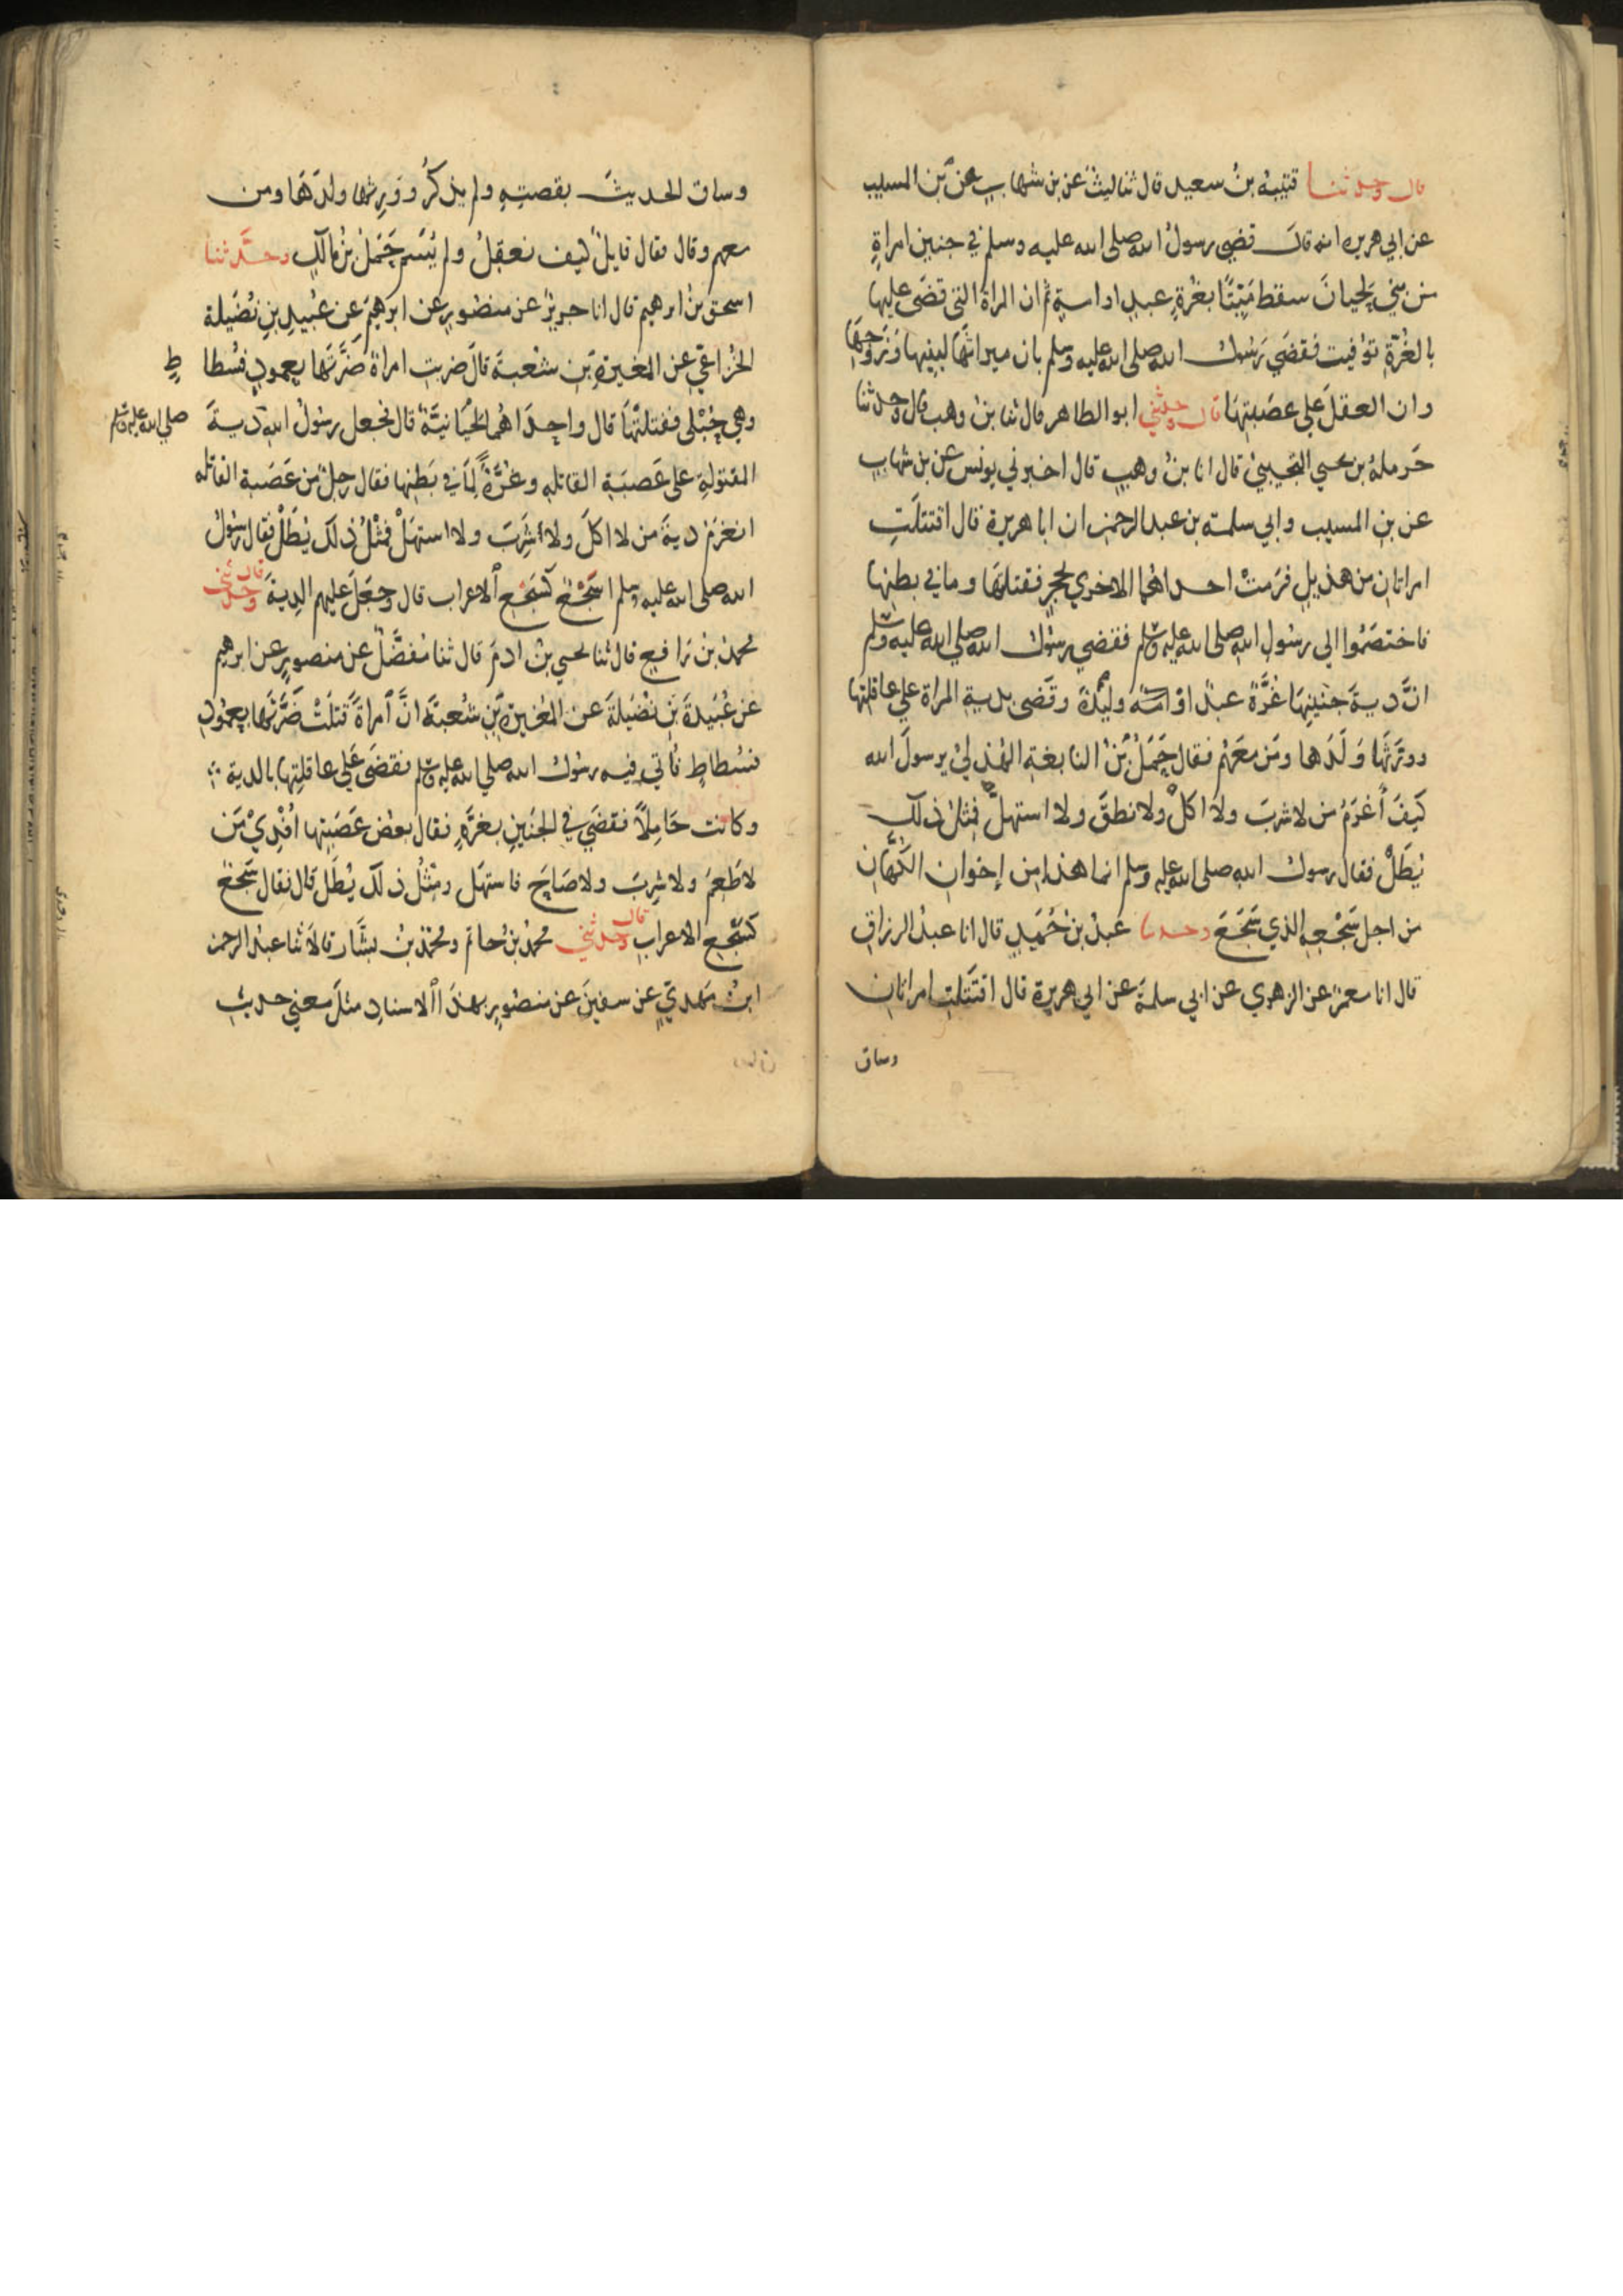 قال وحدثنا قتيبة بنُ سعيد قال ثنا ليثٌ عن بن شهابٍ عن بن المسيب
عن ابي هريره انه قال قضي رسولُ الله صلى الله عليه وسلم في جنين امراةٍ
من بني لحيانَ سقط مَيّتًا بغُرّةٍ عبدٍ او امةٍ ثم ان المراة التي قضَي عليها
بالغُرّةِ توُفيت فقضَي رَسُول الله صلى الله عليه وسلم بان ميراثَها لبنيها وَزَوجِهَا
وان العقلَ علي عصَبتِهَا قال وحدثني ابو الطاهر قال ثنا بنُ وهب قال وحدثنا
حَرملةُ بن يحيي التجيبيُ قال انا بنُ وهبٍ قال اخبرني يونس عن بن شهابٍ
عن بنِ المسيب وابي سلمة بن عبد الرحمن ان ابا هريرة قال اقتتلَتِ
امراتانِ من هذيلٍ فرَمتْ احداهُما الاخري بحجرٍ فقتلتهَا وما في بطنِها
فاختصَمُوا الي رسُولِ اللهِ صلى الله عليه وسلم فقضي رسُول الله صلي الله عليه وسلم
انَّ ديةَ جَنينِهَا غُرَّةٌ عبدٌ اوْ امة وليْدَة وقَضى بديةِ المراة علي عاقلتِها
وورَّثَها وَلَدَها ومَن مَعَهُم فقال حَمَلُ بْنُ النابغةِ الهُذليْ يرسولَ الله
كَيفَ اُغرَمُ مَن لا شربَ ولا اكلَ ولا نطقَ ولا استهلَّ فمثلُ ذلك
يُطَلْ فقال رسول اللهِ صلى الله عليه وسلم انما هذا من إخوانِ الكُهَّانِ
من اجل سَجْعِه الذي سَجَعَ وحدثنا عَبدُ بن حُمَيدٍ قال انا عبدُ الرزاقِ
قال انا معمرٌ عن الزهري عن ابي سلمةَ عن ابي هريرة قال اقتتَلتِ امراتانِ
وساق
وساق الحديثَ بقصتِهِ ولم يذكُرْ ووَرثها ولدَهَا ومن
معهم وقال فقال قايلٌ كيف نعقلُ ولم يُسَم حَمَلُ بنُ مالكٍ وحدَّثنا
اسحق بنُ ابرهيم قال انا جريرٌ عن منصورٍ عن ابرهيمَ عن عُبيدِ بنِ نُضَيلة
الخُزاعيِّ عن المغيرةِ بن شعْبةَ قال ضربتِ امراةٌ ضَرَّتَها بعمودِ فُسْطا طٍ
وهي حُبْلى فقتلَتْهَا قال واحدَاهُما لحْيَانيَّةٌ قال فجعل رسُولُ اللهِ ديةَ صلي الله عليه وسلم
المقتولةِ على عَصَبَةِ القاتلهِ وغُرَّةً لِمَا في بَطنِها فقال رجلٌ من عَصَبة القاتله
انغرَمُ ديةَ من لا اكلَ ولا شَرِبَ ولا استهَلْ فمثْلُ ذلك يُطَلْ فقَال رسُولُ
الله صلى الله عليه وسلم اَسَجْعٌ كسَجْعِ الاعرابِ قال وجعَلَ عليهم الدِيةَ قال وحدثني
محمدُ بنُ رَافعٍ قال ثنا يحيي بنُ ادمَ قال ثنا مُفضَّلٌ عن منصورٍ عن ابرهيم
عن عُبَيدةَ بنِ نُضَيلةَ عن المُغيرةِ بْنِ شُعبَةَ انَّ امراةً قَتلَتْ ضَرَّتَها بعمُودِ
فسُطاطٍ فاُتي فيه رسُول الله صلي الله عليه وسلم فقضَى عَلي عاقلتِها بالدية
وكانت حَامِلاً فقضَي في الجنَينِ بغرَّةٍ فقال بعضُ عَصَبَتِها اَنَدِيْ مَن
لا طَعِمَ ولا شرِبَ ولا صَاحَ فاستهَل ومثْلُ ذلك يُطَلْ قال فقال سَجْعٌ
كسَجْعِ الاعرابِ قال وحدثني محمدُ بنُ حاتم ومحمدُ بنُ بشَّار قالاَ ثنا عبدُ الرحمن
ابنُ مَهديٍّ عن سفينَ عن منصُورٍ بهذَا الاسنادِ مثلَ معني حديثِ